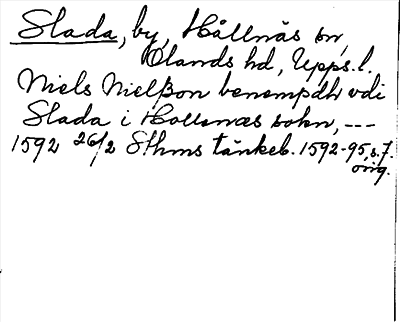 Slada, by, Hållnäs sn,
Olands hd, Upps.l.
Niels Nielßon benempdh vdi
Slada i Hollenæs sokn, ---
1592 26/2 Sthms tänkeb. 1592-95, s.7.
orig.